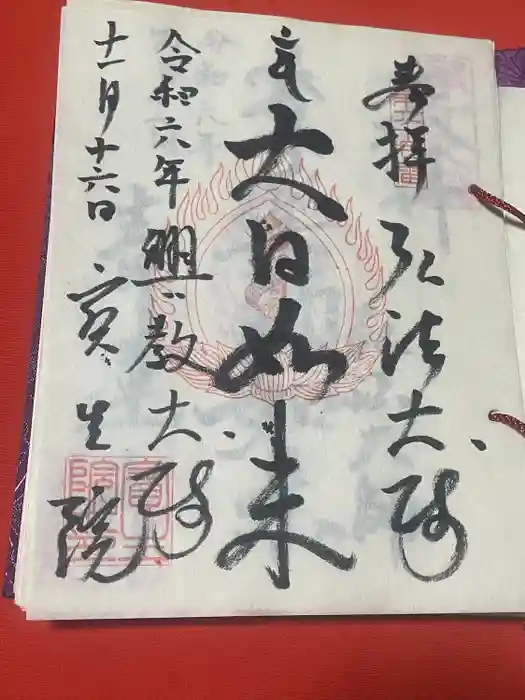 奉拝 弘法大師
大日如来
令和六年 興教大師
十一月十六日 寳生院